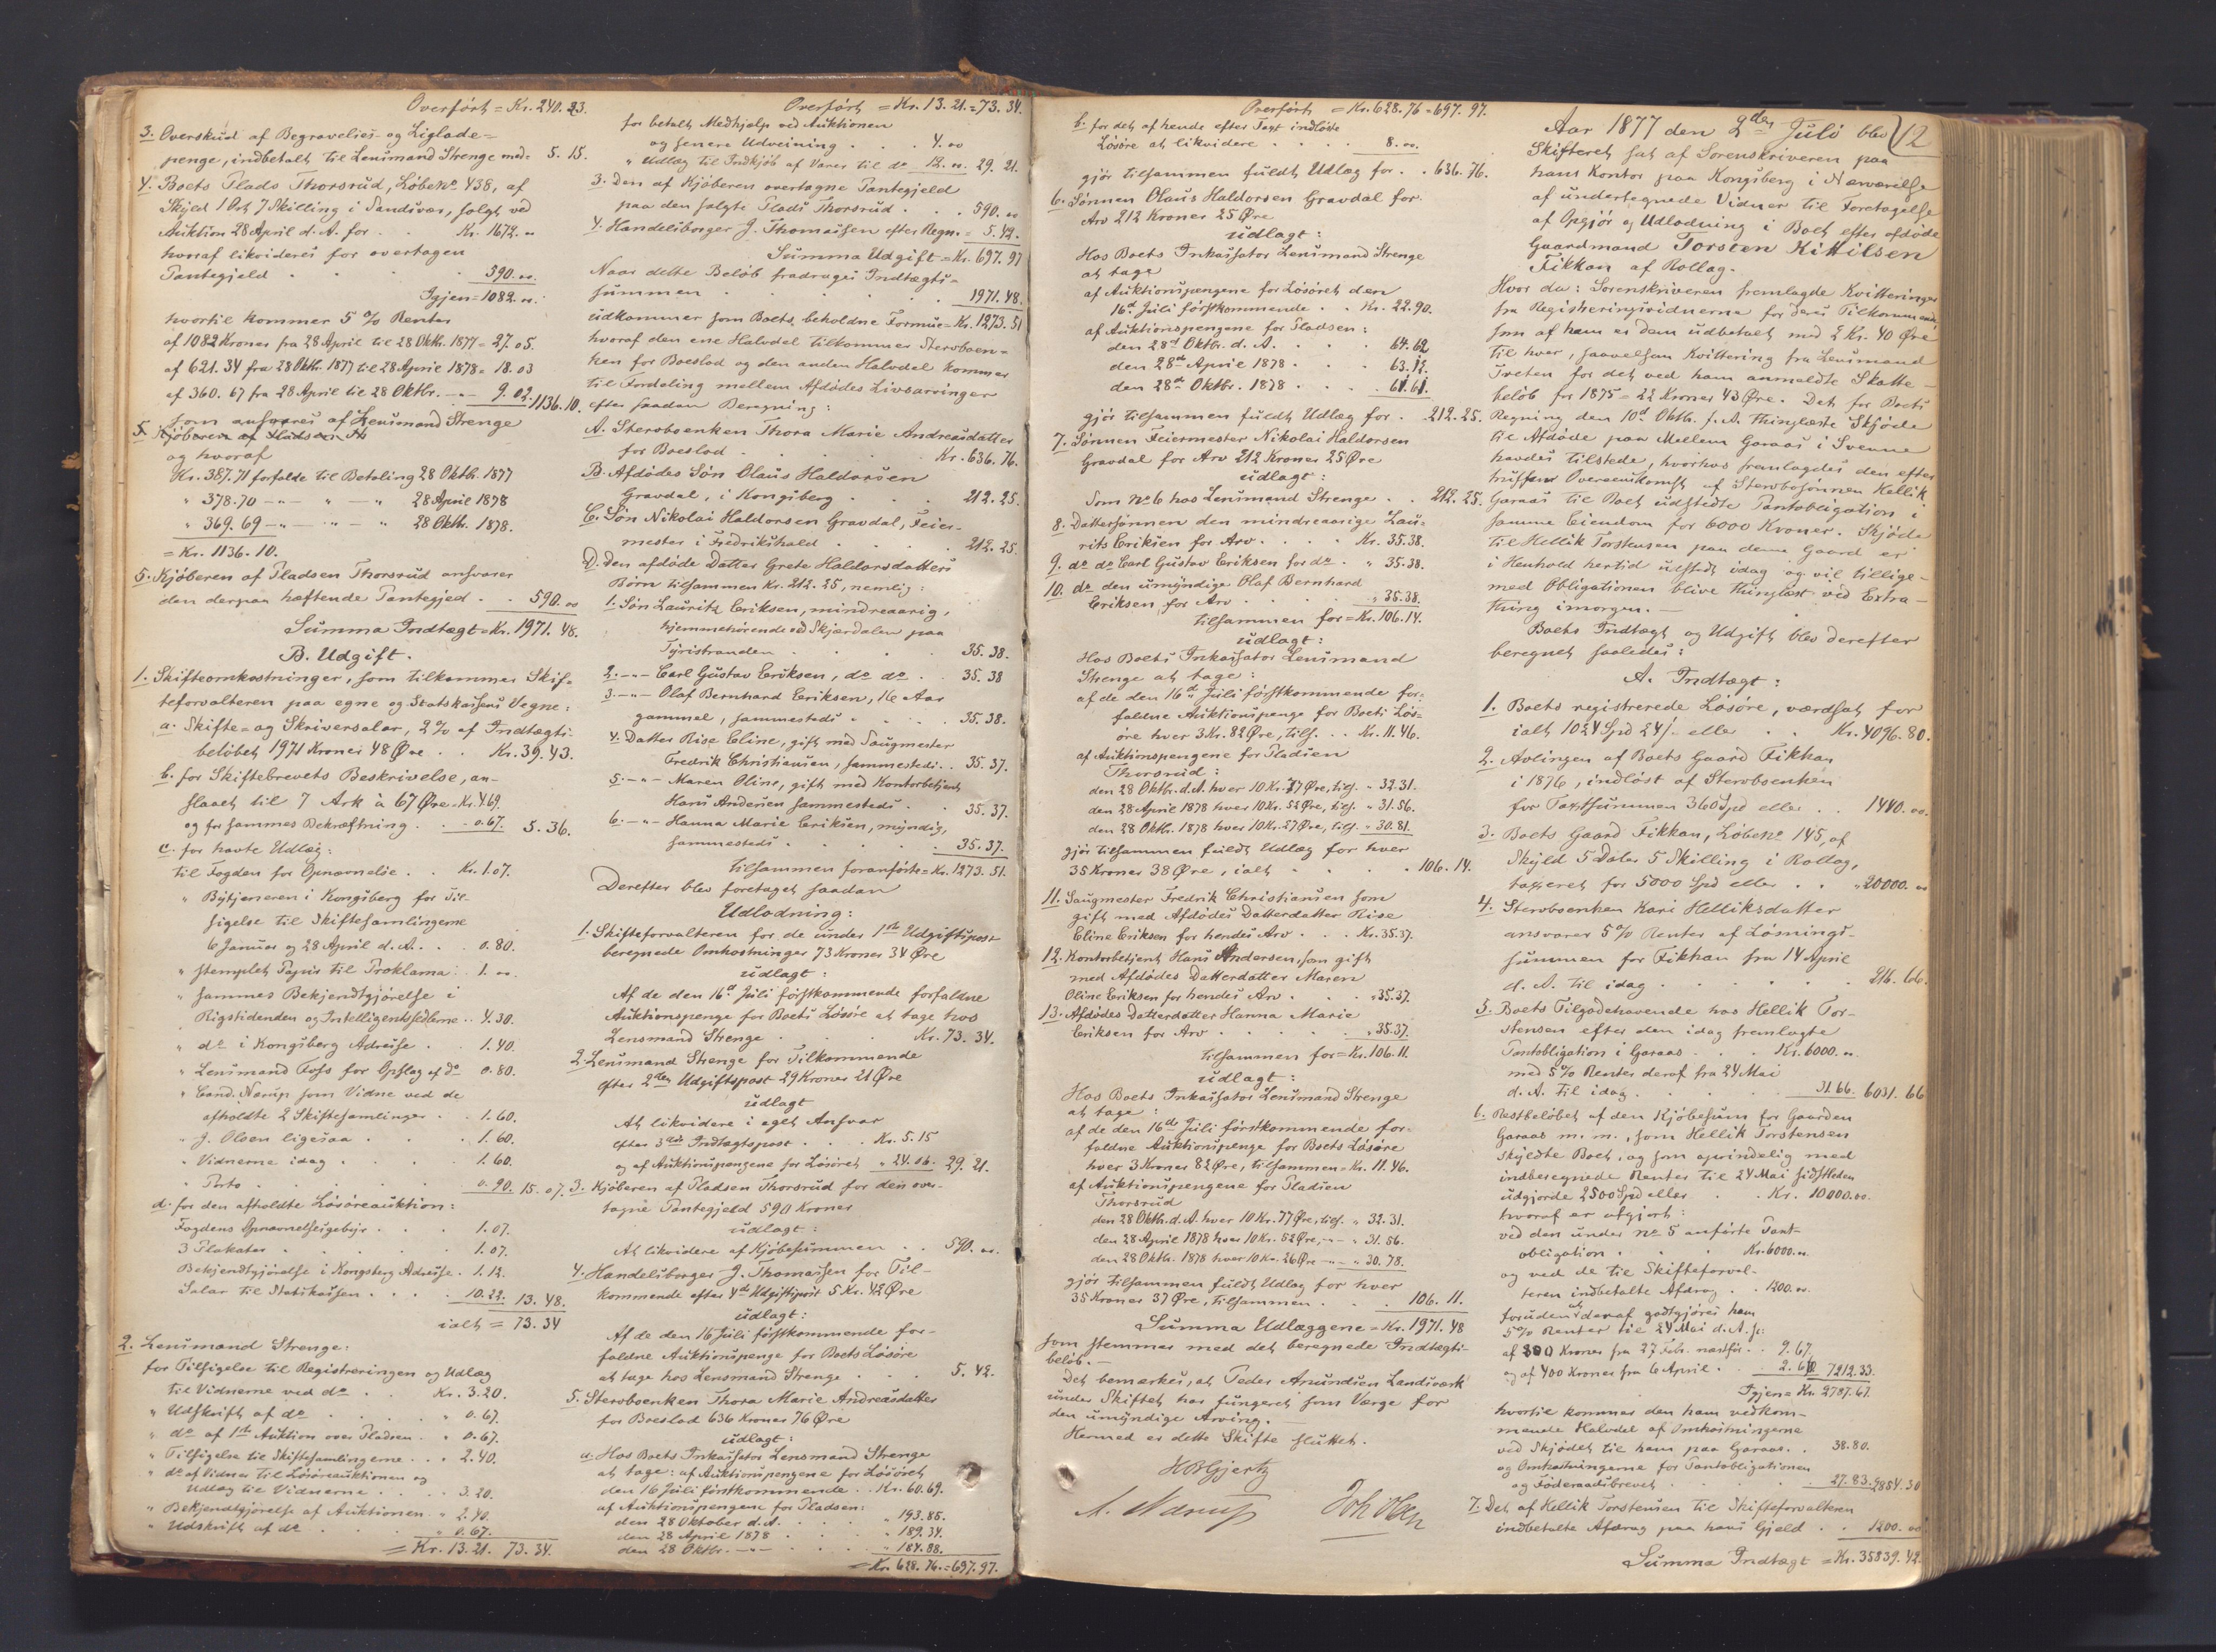 Overført = Kr. 240. 23.
3. Overskud af Begravelses- og Liglade-
penge, indbetalt til Lensmand Strenge med = 5. 15.
4. Boets Plads Thorsrud, Løbeno 438, af
Skyld 1 Ort 7 Skilling i Sandsvær, solgt ved
Auktion 28 April d. A. for . Kr. 1672. "
hvoraf likvideres for overtagen
Pantegjeld . . . 590. oo.
Igjen = 1082. oo.
hvortil kommer 5 % Renter
af 1082 Kroner fra 28 April til 28 Oktbr. 1877 = 27. 05.
af 621. 34 fra 28 Oktbr. 1877 til 28 April 1878 = 18. 03
af 360. 67 fra 28 April til 28 Oktbr. —"— 9. 02. 1136. 10.
som ansvares af Lensmand Strenge
og hvoraf
Kr. 387. 71 forfalde til Betaling 28 Oktb. 1877
" 378. 70 —"— " —" 28 April 1878
" 369. 69 —"— —"— " 28 Oktbr. 1878.
= Kr. 1136. 10.
5. Kjøberen af Pladsen Thorsrud ansvarer
den derpaa hæftende Pantegjed . . 590. oo
Summa Indtægt = Kr. 1971. 48.
B. Udgift.
1. Skifteomkostninger, som tilkommer Skif-
teforvalteren paa egne og Statskassens Vegne:
a. Skifte- og Skriversalær, 2 % af Indtægts-
beløbet 1971 Kroner 48 Øre . . Kr. 39. 43.
b. for Skiftebrevets Beskrivelse, an-
slaaet til 7 Ark à 67 Øre = Kr. 4.69.
og for sammes Bekræftning . . 0. 67. 5. 36.
c. for havte Udlæg:
til Fogden for Opnævnelse . . Kr. 1. 07.
" Bytjeneren i Kongsberg for Til-
sigelse til Skiftesamlingerne
6 Januar og 28 April d. A. . . 0. 80.
" stemplet Papir til Proklama . . 1. oo.
" sammes Bekjendtgjørelse i
Rigstidenden og Intelligentssedlerne . . 4. 30.
" do i Kongsberg Adresse . . 1. 40.
" Lensmand Foss for Opslag af do 0. 80.
" Cand. Narup som Vidne ved de
afholdte 2 Skiftesamlinger . . 1. 60.
" J. Olsen ligesaa . . . 1. 60.
" Vidnerne idag . . . 1. 60.
" Porto . . . 0. 90. 15. 07.
d. for den afholdte Løsøreauktion:
Fogdens Opnævnelsesgebyr . . 1. 07.
3 Plakater . . . 1. 07.
Bekjendtgjørelse i Kongsberg Adresse . 1. 12.
Salær til Statskassen . . . 10. 22. 13. 48.
ialt = 73. 34
2. Lensmand Strenge:
for Tilsigelse til Registreringen og Udlæg
til Vidnerne ved do . . Kr. 3. 20.
" Udskrift af do . . . " 0. 67.
" do af 1ste Auktion over Pladsen . " 0. 67.
" Tilsigelse til Skiftesamlingerne . . . 2. 40.
" do af Vidner til Løsøreauktionen og
Udlæg til Vidnerne . . . 3. 20.
" Bekjendtgjørelse af Auktionen . " 2. 40.
" Udskrift af do . . . " 0. 67.
= Kr. 13. 21. 73. 34.
Overført = Kr. 13. 21. = 73. 34.
for betalt Medhjælp ved Auktionen
og senere Udveining . . . 4. oo
" Udlæg til Indkjøb af Varer til do 12. oo. 29. 21.
3. Den af Kjøberen overtagne Pantegjeld
paa den solgte Plads Thorsrud . . . 590. oo
4. Handelsborger J. Thomassen efter Regn. = 5. 42.
Summa Udgift = Kr. 697. 97
Naar dette Beløb fradrages Indtægts-
summen . . . 1971. 48.
udkommer som Boets beholdne Formue = Kr. 1273. 51
hvoraf den ene Halvdel tilkommer Stervboen-
ken for Boeslod og den anden Halvdel kommer
til Fordeling mellem Afdødes Livsarvinger
efter saadan Beregning:
A. Stervboenken Thora Marie Andreasdatter
for Boeslod . . . Kr. 636. 76.
B. Afdødes Søn Olaus Haldorsen
Gravdal, i Kongsberg . . . 212. 25.
C. Søn Nikolai Haldorsen Gravdal, Feier-
mester i Fredrikshald . . . 212. 25.
D. Den afdøde Datter Grete Haldorsdatters
Børn tilsammen Kr. 212. 25, nemlig:
1. Søn Lauritz Eriksen, mindreaarig,
hjemmehørende ved Skjærdalen paa
Tyristranden . . . 35. 38.
2. —"— Carl Gustav Eriksen, do do . . 35. 38
3. —"— Olaf Bernhard Eriksen, 16 Aar
gammel, sammesteds . . . 35. 38.
4. Datter Rise Eline, gift med Saugmester
Fredrik Christiansen, sammesteds . . 35. 37.
5. —"— Maren Oline, gift med Kontorbetjent
Hans Andersen sammesteds . . 35. 37.
6. —"— Hanna Marie Eriksen, myndig,
sammesteds . . . 35. 37.
tilsammen foranførte = Kr. 1273. 51.
Derefter blev foretaget saadan
Udlodning:
1. Skifteforvalteren for de under 1ste Udgiftspost
beregnede Omkostninger 73 Kroner 34 Øre
udlagt:
Af de den 16d Juli førstkommende forfaldne
Auktionspenge for Boets Løsøre at tage hos
Lensmand Strenge . . . Kr. 73. 34.
2. Lensmand Strenge for Tilkommende
efter 2den Udgiftspost 29 Kroner 21 Øre
udlagt
At likvidere i eget Ansvar
efter 3die Indtægtspost . . . Kr. 5. 15
og af Auktionspengene for Løsøret " 24. 06. 29. 21.
3. Kjøberen af Pladsen Thorsrud for den over-
tagne Pantegjeld 590 Kroner
udlagt:
At likvidere af Kjøbesummen . . 590. oo.
4. Handelsborger J. Thomassen for Til-
kommende efter 4de Udgiftspost 5 Kr. 42 Øre
udlagt:
Af de den 16 Juli førstkommende for-
faldne Auktionspenge for Boets Løsøre
at tage hos Lensmand Strenge . . . 5. 42.
5. Stervboenken Thora Marie Andreasdatter
for Boeslod 636 Kroner 76 Øre
udlagt:
a. Hos Boets Inkassator Lensmand Strenge
at tage: af Auktionspengene for Løsøret
den 16 Juli førstkommende . . Kr. 60. 69.
af Auktionspengene for Pladsen:
den 28 Oktober d. A. . . . " 193. 85.
den 28 April 1878 . . . " 189. 34.
den 28 Oktbr. —"— . . . " 184. 88.
= Kr. 628. 76. = 697. 97.
Overført = Kr. 628. 76 = 697. 97.
b. for det af hende efter Taxt indløste
Løsøre at likvidere . . . 8. oo.
gjør tilsammen fuldt Udlæg for . . 636. 76.
6. Sønnen Olaus Haldorsen Gravdal for
Arv 212 Kroner 25 Øre
udlagt:
Hos Boets Inkassator Lensmand Strenge
at tage
af Auktionspengene for Løsøret den
16d Juli førstkommende . . Kr. 22. 90.
af Auktionspengene for Pladsen:
den 28d Oktbr. d. A. . . . 64. 62
den 28de April 1878 . . . 63. 12.
den 28de Oktbr. 1878 . . . 61. 61.
gjør tilsammen fuldt Udlæg for . 212. 25.
7. Sønnen Feiermester Nikolai Haldorsen
Gravdal for Arv 212 Kroner 25 Øre
udlagt:
Som No 6 hos Lensmand Strenge . . 212. 25.
8. Dattersønnen den mindreaarige Lau-
rits Eriksen for Arv . . . Kr. 35. 38.
9. do do Carl Gustav Eriksen for do . " 35. 38.
10. do den umyndige Olaf Bernhard
Eriksen for Arv . . . " 35. 38.
tilsammen for = Kr. 106. 14.
udlagt:
Hos Boets Inkassator Lensmand
Strenge at tage:
af de den 16de Juli førstkommende for-
faldne Auktionspenge for Boets Løs-
øre hver 3 Kr. 82 Øre, tils. . . Kr. 11. 46.
af Auktionspengene for Pladsen
Thorsrud:
den 28 Oktbr. d. A. hver 10 Kr. 77 Øre, tils. " 32. 31.
den 28 April 1878 hver 10 Kr. 52 Øre, tils. " 31. 56.
den 28 Oktbr. 1878 hver 10 Kr. 27 Øre, tils. " 30. 81.
gjør tilsammen fuldt Udlæg for hver
35 Kroner 38 Øre, ialt . . . 106. 14.
11. Saugmester Fredrik Christiansen som
gift med Afdødes Datterdatter Rise
Eline Eriksen for hendes Arv . . . Kr. 35. 37.
12. Kontorbetjent Hans Andersen, som gift
med Afdødes Datterdatter Maren
Oline Eriksen for hendes Arv . . . " 35. 37.
13. Afdødes Datterdatter Hanna Marie
Eriksen for Arv . . . " 35. 37.
tilsammen for = Kr. 106. 11.
udlagt:
Hos Boets Inkassator Lensmand Strenge
at tage:
af de den 16de Juli førstkommende for-
faldne Auktionspenge for Boets Løsøre
hver 3 Kroner 82 Øre, tilsammen = Kr. 11. 46.
af Auktionspengene for Pladsen
Thorsrud
den 28 Oktb. d. A. hver 10 Kr. 77 Øre, tils. " 32. 31.
den 28 April 1878 hver 10 Kr. 52 Øre, —"— " 31. 56.
den 28 Oktbr. 1878 hver 10 Kr. 26 Øre —"— " 30. 78.
gjør tilsammen fuldt Udlæg for hver
35 Kroner 37 Øre, tilsammen . . . 106. 11.
Summa Udlæggene = Kr. 1971. 48
som stemmer med det beregnede Indtægts-
beløb. —
Det bemærkes, at Peder Amundsen Landsværk
under Skiftet har fungeret som Værge for
den umyndige Arving. —
Hermed er dette Skifte sluttet.
HBGjertz
A. Narup Joh Olsen
12
Aar 1877 den 2den Juli blev
Skifteret sat af Sorenskriveren paa
hans Kontor paa Kongsberg i Nærværelse
af undertegnede Vidner til Foretagelse
af Opgjør og Udlodning i Boet efter afdøde
Gaardmand Torsten Kittilsen
Fikkan af Rollag.
Hvor da: Sorenskriveren fremlagde Kvitteringer
fra Registreringsvidnerne for deres Tilkommende
som af ham er dem udbetalt med 2 Kr. 40 Øre
til hver, saavelsom Kvittering fra Lensmand
Treten for det ved ham anmeldte Skatte-
beløb for 1875 = 22 Kroner 43 Øre. Det for Boets
Regning den 10d Oktb. f. A. thinglæste Skjøde
til Afdøde paa Mellem Garaas i Svenne
havdes tilstede, hvorhos fremlagdes den efter
truffen Overenskomst af Stervbosønnen Hellik
Garaas til Boet udstedte Pantobligation i
samme Eiendom for 6000 Kroner. Skjøde
til Hellik Torstensen paa denne Gaard er
i Henhold hertil udstedt idag og vil tillige-
med Obligationen blive thinglæst ved Extra-
thing imorgen. —
Boets Indtægt og Udgift blev derefter
beregnet saaledes:
A. Indtægt:
1. Boets registrerede Løsøre, værdsat for
ialt 1024 Spd 24 ß. eller . . Kr. 4096. 80.
2. Avlingen af Boets Gaard Fikkan
i 1876, indløst af Stervboenken
for Taxtsummen 360 Spd eller . . 1440. oo.
3. Boets Gaard Fikkan, Løbeno 145, af
Skyld 5 Daler 5 Skilling i Rollag,
taxeret for 5000 Spd eller . . " 20000. oo
4. Stervboenken Kari Helliksdatter
ansvarer 5 % Renter af Løsnings-
summen for Fikkan fra 14 April
d. A. til idag . . . 216. 66.
5. Boets Tilgodehavende hos Hellik Tor-
stensen efter den idag fremlagte
Pantobligation i Garaas . . . Kr. 6000. oo
med 5 % Renter deraf fra 24 Mai
d. A. til idag . . . 31. 66. 6031. 66
6. Restbeløbet af den Kjøbesum for Gaarden
Garaas m. m., som Hellik Torstensen
skyldte Boet, og som oprindelig med
indberegnede Renter til 24 Mai sidstleden
udgjorde 2500 Spd eller . . Kr. 10000. oo.
hvoraf er afgjort:
ved den under No 5 anførte Pant-
obligation . . . Kr. 6000. oo.
og ved de til Skifteforval-
teren indbetalte Afdrag . . 1200. oo.
foruden at deraf godtgjøres ham
5 % Renter til 24 Mai d. A. :
af 800 Kroner fra 27 Febr. næstfør . . 9. 67.
og af 400 Kroner fra 6 April . . 2. 66 7212. 33.
Igjen = Kr. 2787. 67.
hvortil kommer den ham vedkom-
mende Halvdel af Omkostningerne
ved Skjødet til ham paa Garaas . . 38. 80.
og Omkostningerne for Pantobligationen
og Føderaadsbrevet . . . 27. 83. 2854. 30
7. Det af Hellik Torstensen til Skifteforvalteren
indbetalte Afdrag paa hans Gjeld . . 1200. oo
Summa Indtægt = Kr. 35839. 42.